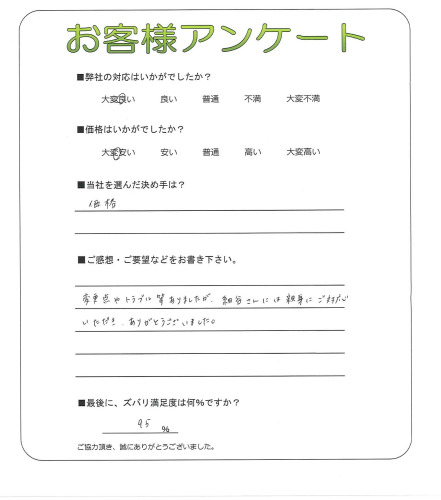 お客様アンケート
■弊社の対応はいかがでしたか？
大変良い 良い 普通 不満 大変不満
■価格はいかがでしたか？
大変安い 安い 普通 高い 大変高い
■当社を選んだ決め手は？
価格
■ご感想・ご要望などをお書き下さい。
変更点やトラブル等ありましたが、細谷さんには親身にご対応
いただき、ありがとうございました。
■最後に、ズバリ満足度は何%ですか？
95 %
ご協力頂き、誠にありがとうございました。